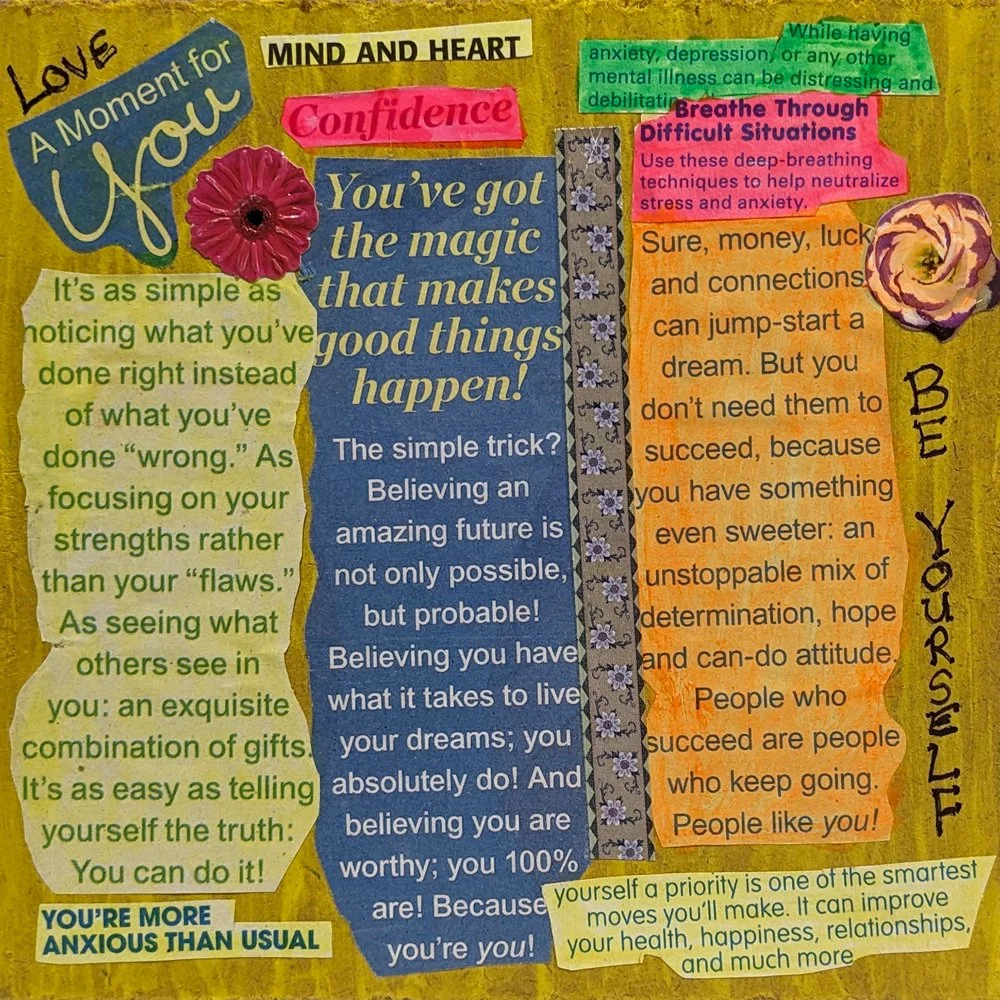 LOVE
A Moment for
You
MIND AND HEART
Confidence
While having
anxiety, depression, or any other
mental illness can be distressing and
Breathe Through
Difficult Situations
Use these deep-breathing
techniques to help neutralize
stress and anxiety.
It's as simple as
noticing what you've
done right instead
of what you've
done “wrong.” As
focusing on your
strengths rather
than your “flaws.”
As seeing what
others see in
you: an exquisite
combination of gifts.
It's as easy as telling
yourself the truth:
You can do it!
YOU'RE MORE
ANXIOUS THAN USUAL
You've got
the magic
that makes
good things
happen!
The simple trick?
Believing an
amazing future is
not only possible,
but probable!
Believing you have
what it takes to live
your dreams; you
absolutely do! And
believing you are
worthy; you 100%
are! Because
you're you!
Sure, money, luck
and connections
can jump-start a
dream. But you
don't need them to
succeed, because
you have something
even sweeter: an
unstoppable mix of
determination, hope
and can-do attitude.
People who
succeed are people
who keep going.
People like you!
yourself a priority is one of the smartest
moves you'll make. It can improve
your health, happiness, relationships,
and much more
BE YOURSELF